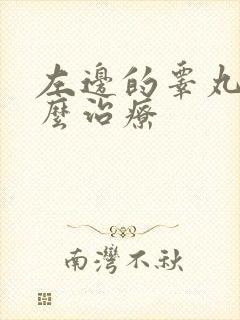 左邊的睾丸
麼治療
南灣不秋